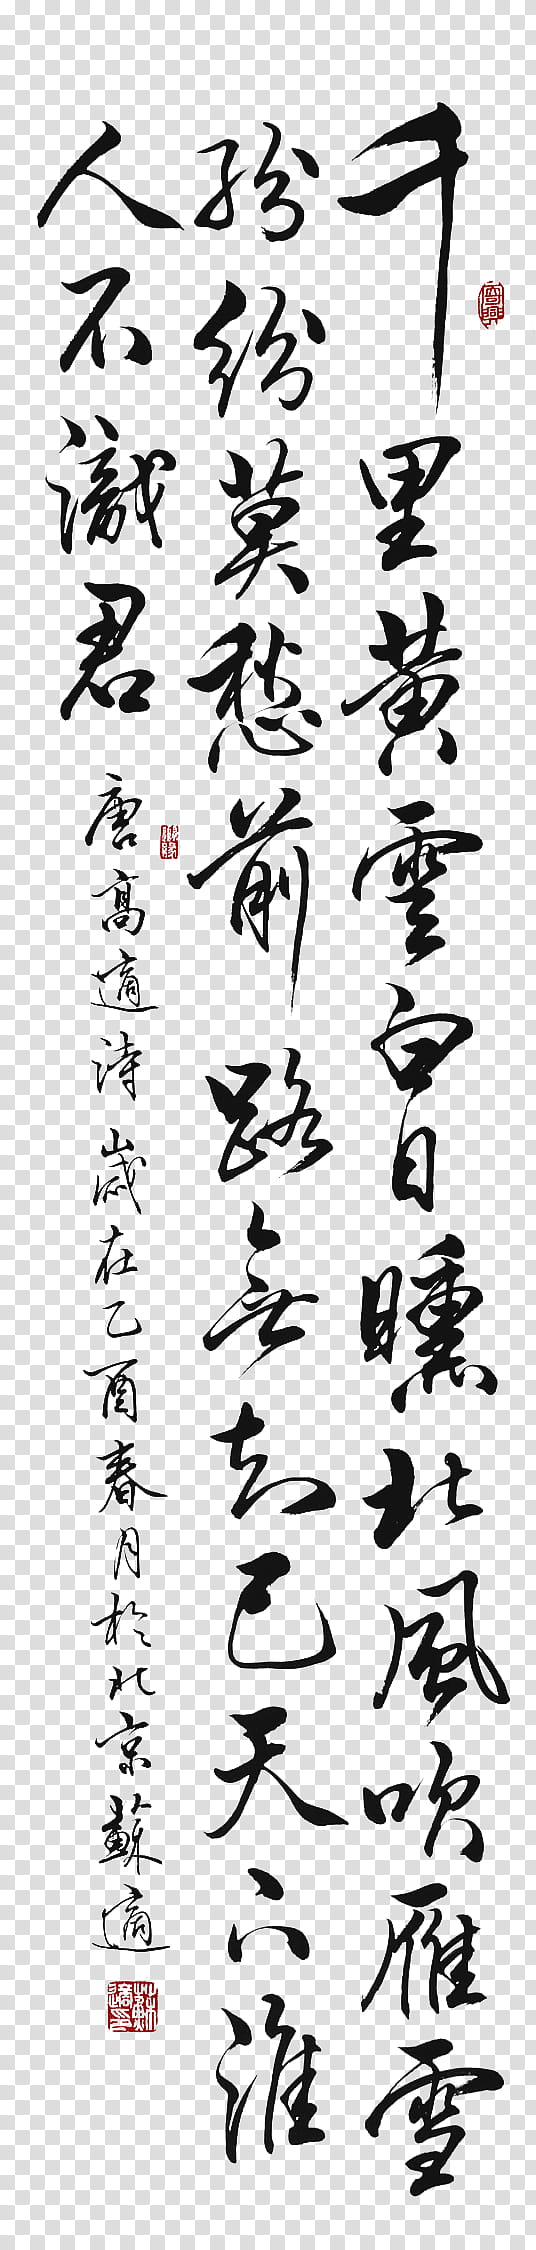 千里黃雲白日曛北風吹雁雪
紛紛莫愁前路無知己天下誰
人不識君
唐高適詩歲在乙酉春月於北京蘇適